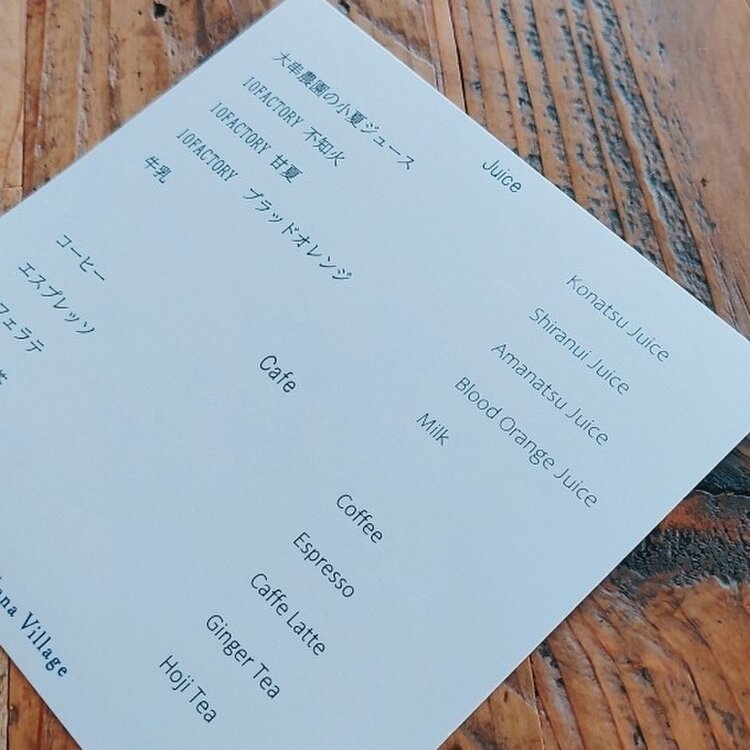 Juice
大串農園の小夏ジュース Konatsu Juice
10FACTORY 不知火 Shiranui Juice
10FACTORY 甘夏 Amanatsu Juice
10FACTORY ブラッドオレンジ Blood Orange Juice
牛乳 Milk
Cafe
コーヒー Coffee
エスプレッソ Espresso
フェラテ Caffe Latte
茶 Ginger Tea
Hoji Tea
ana Village